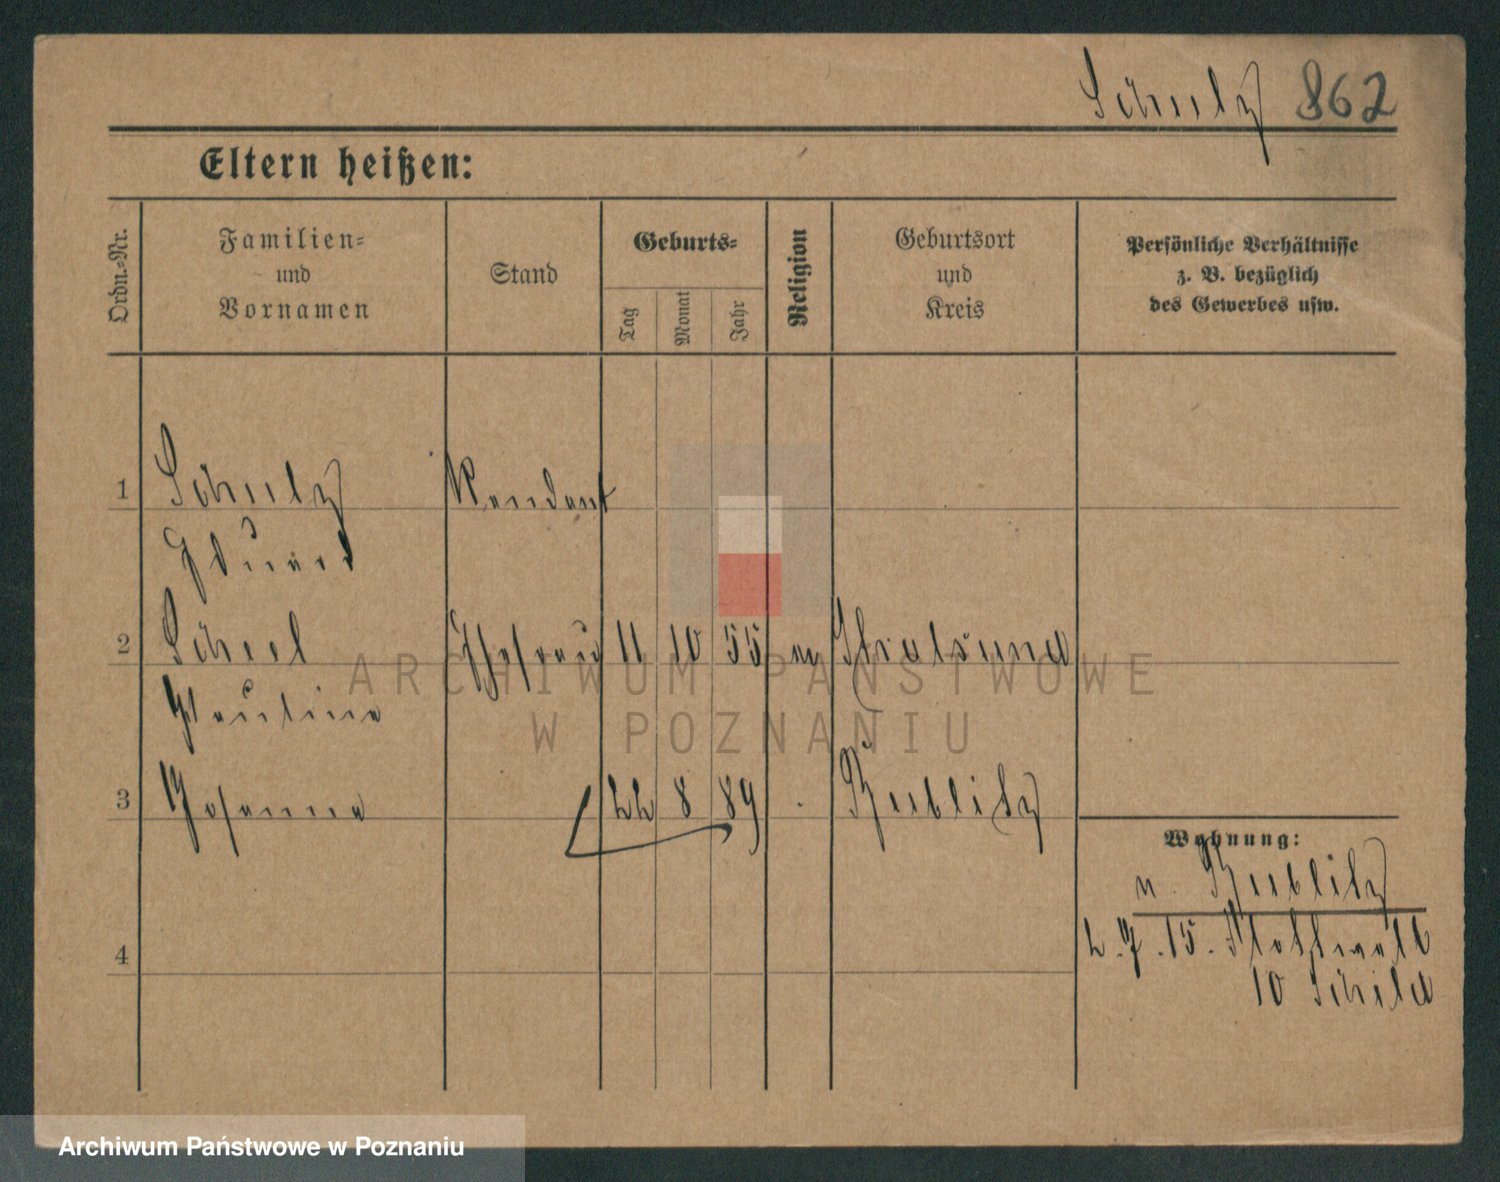 Schulz 862
Eltern heißen:
Ordn.=Nr.
Familien=
und
Vornamen
Stand
Geburts=
Tag
Monat
Jahr
Religion
Geburtsort
und
Kreis
Persönliche Verhältnisse
z. B. bezüglich
des Gewerbes usw.
1 Schulz Rendant
Eduard
2 Scheel Ehefrau 11 10 55 ev Stralsund
Pauline
3 Johanna 22 8 89 Kieblitz
4
Wohnung:
n. Kieblitz
2.7.15.
10 Schild
ARCHIWUM PAŃSTWOWE
W POZNANIU
Archiwum Państwowe w Poznaniu